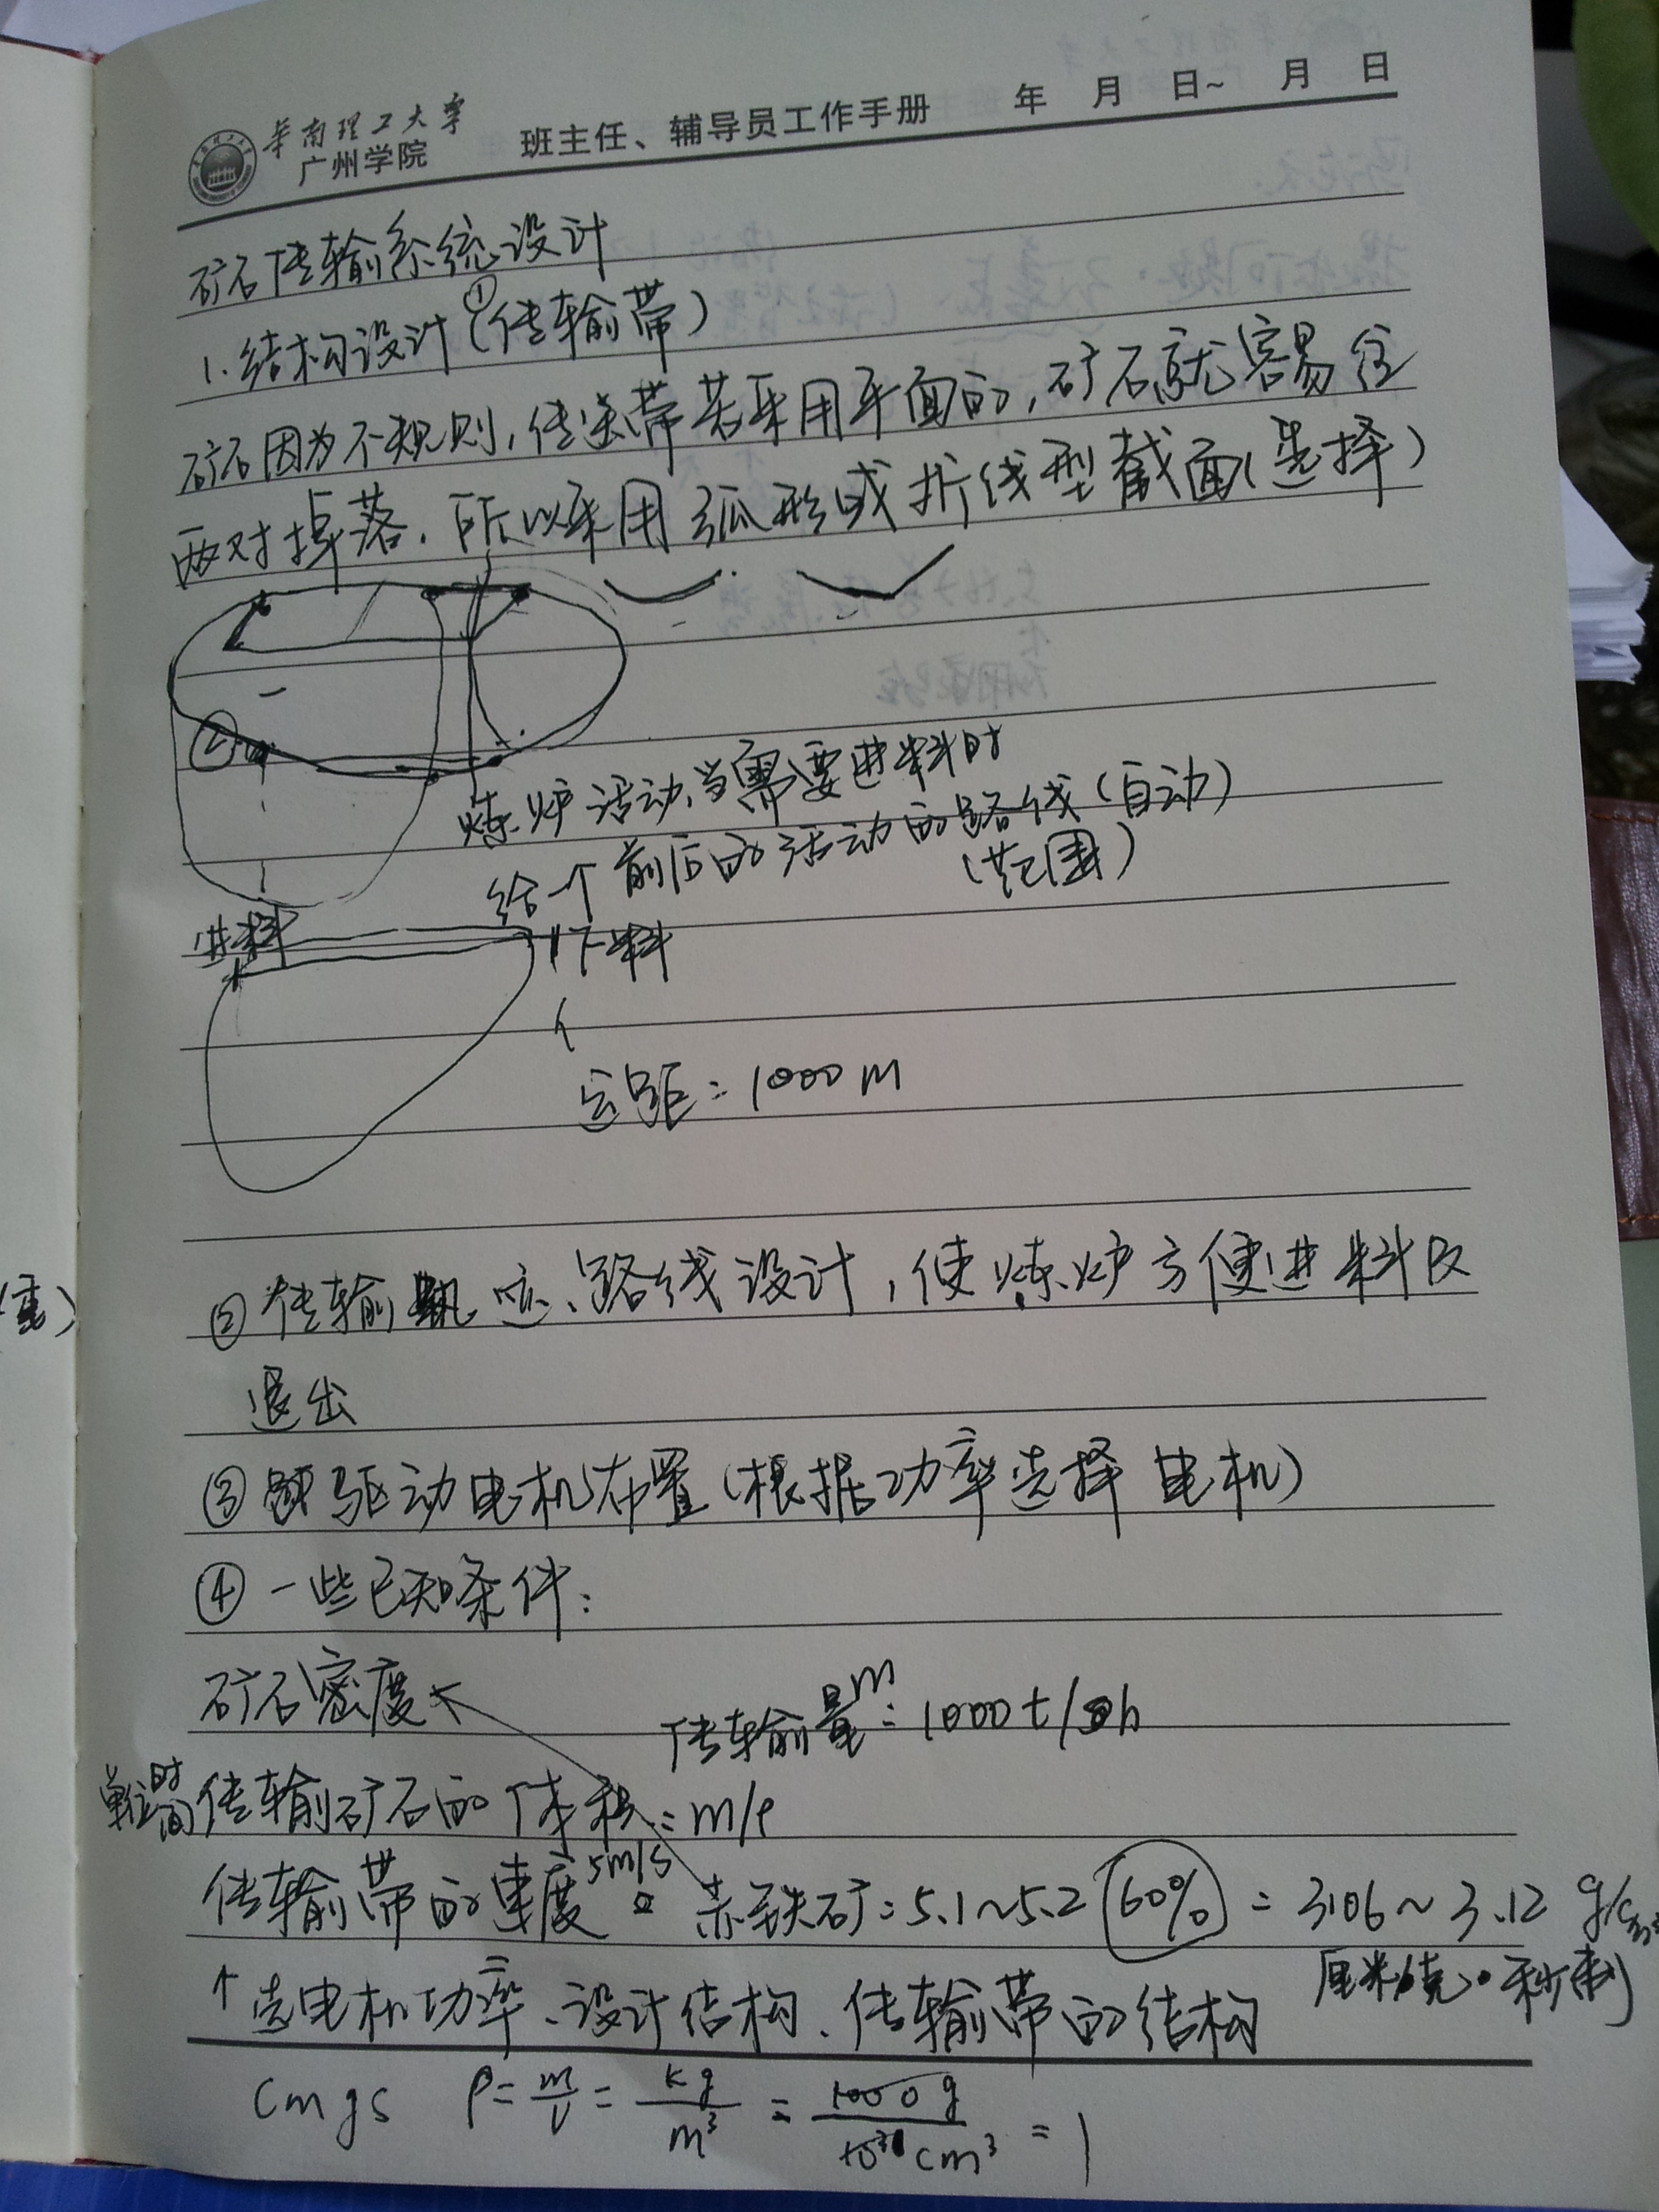 华南理工大学
广州学院
班主任、辅导员工作手册 年 月 日~ 月 日
矿石传输系统设计
1.结构设计①(传输带)
矿石因为不规则,传送带若采用平面的,矿石就容易往
两对掉落,所以采用弧形或折线型截面(选择)
②
炼炉活动,当需要进料时
给一个前后的活动的路线(自动)
(范围)
进料
下料
运距=1000m
②传输轨迹、路线设计,使炼炉方便进料及
退出
③驱动电机布置(根据功率选择电机)
④一些已知条件:
矿石密度
传输量m=1000t/h
单位时间传输矿石的体积=m/ρ
传输带的速度5m/s 赤铁矿:5.1~5.2(60%)=3.06~3.12 g/cm3
厘米克秒制
↑选电机功率、设计结构、传输带的结构
cmgs ρ=m/v=kg/m³=1000g/cm³=1